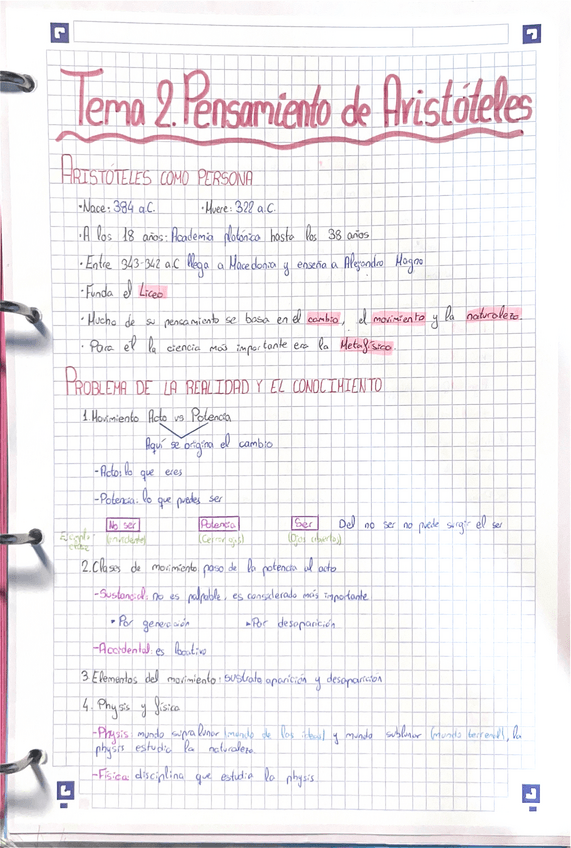 Tema 2. Pensamiento de Aristóteles
ARISTÓTELES COMO PERSONA
·Nace: 384 a.C. ·Muere: 322 a.C.
·A los 18 años: Academia platónica hasta los 38 años
·Entre 343-342 a.C llega a Macedonia y enseña a Alejandro Magno
·Funda el Liceo.
·Mucho de su pensamiento se basa en el cambio, el movimiento y la naturaleza.
·Para él la ciencia más importante era la Metafísica.
PROBLEMA DE LA REALIDAD Y EL CONOCIMIENTO
1.Movimiento Acto vs Potencia
Aquí se origina el cambio
-Acto: lo que eres
-Potencia: lo que puedes ser
No ser Potencia Ser Del no ser no puede surgir el ser
(invidente) (Cerrar ojos) (Ojos abiertos)
2.Clases de movimiento: paso de la potencia al acto
-Sustancial: no es palpable, es considerado más importante
• Por generación • Por desaparición
-Accidental: es locativo
3.Elementos del movimiento: sustrato aparición y desaparición
4. Physis y física
-Physis: mundo supralunar (mundo de las ideas) y mundo sublunar (mundo terrenal), la
physis estudia la naturaleza.
-Física: disciplina que estudia la physis